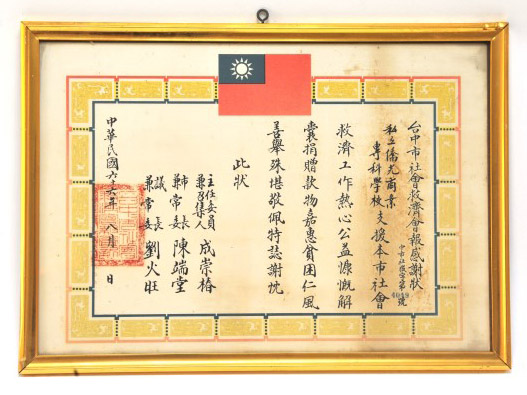 台中市社會救濟會報感謝狀
中市社救字第4019號
私立僑光商業
專科學校支援本市社會
救濟工作熱心公益慷慨解
囊捐贈款物嘉惠貧困仁風
善舉殊堪敬佩特誌謝忱
此狀
主任委員
兼召集人 成崇椿
兼常委 陳端堂
議長
兼常委 劉火旺
中華民國六十六年八月 日